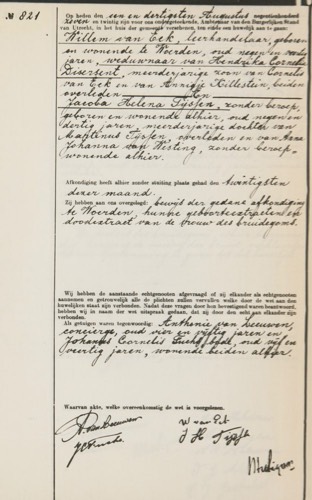 No 821
Op heden den een en dertigsten Augustus negentienhonderd
zeven en twintig zijn voor ons ondergeteekende, Ambtenaar van den Burgerlijken Stand
van Utrecht, in het huis der gemeente verschenen, ten einde een huwelijk aan te gaan:
Willem van Eck, leerhandelaar, geboren
en wonende te Woerden, oud negen en veertig
jaren, weduwnaar van Hendrika Cornelia
meerderjarige zoon van Cornelis
van Eck en van Annigje Hillestein, beiden
overleden
en
Jacoba Helena Tijssen, zonder beroep,
geboren en wonende alhier, oud negen en
dertig jaren, meerderjarige dochter van
Martinus Tijssen, overleden en van Anna
Johanna van Westing, zonder beroep,
wonende alhier.
Afkondiging heeft alhier zonder stuiting plaats gehad den twintigsten
dezer maand.
Zij hebben aan ons overgelegd: bewijs der gedane afkondiging
te Woerden, hunne geboorteextracten en
doodextract van de vrouw des bruidegoms.
Wij hebben de aanstaande echtgenooten afgevraagd of zij elkander als echtgenooten
aannemen en getrouwelijk alle de plichten zullen vervullen welke door de wet aan den
huwelijken staat zijn verbonden. Nadat deze vragen door hen bevestigend waren beantwoord,
hebben wij in naam der wet uitspraak gedaan, dat zij door den echt aan elkander zijn
verbonden.
Als getuigen waren tegenwoordig: Anthonie van Leeuwen,
concierge, oud vier en vijftig jaren en
Johannes Cornelis oud vijf en
veertig jaren, wonende beiden alhier.
Waarvan akte, welke overeenkomstig de wet is voorgelezen.
W van Eck
J H Tijssen